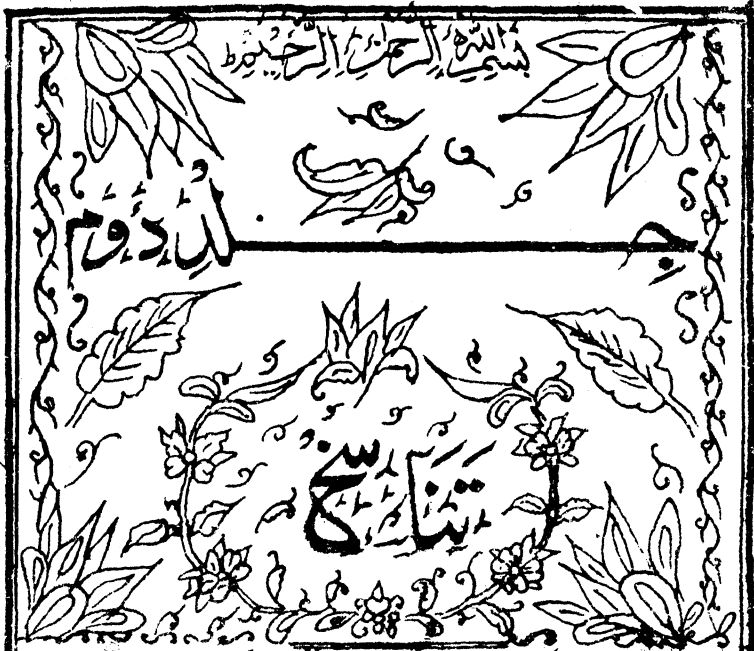 بسم اللہ الرحمن الرحیم ط
جلد دوم
تناسخ